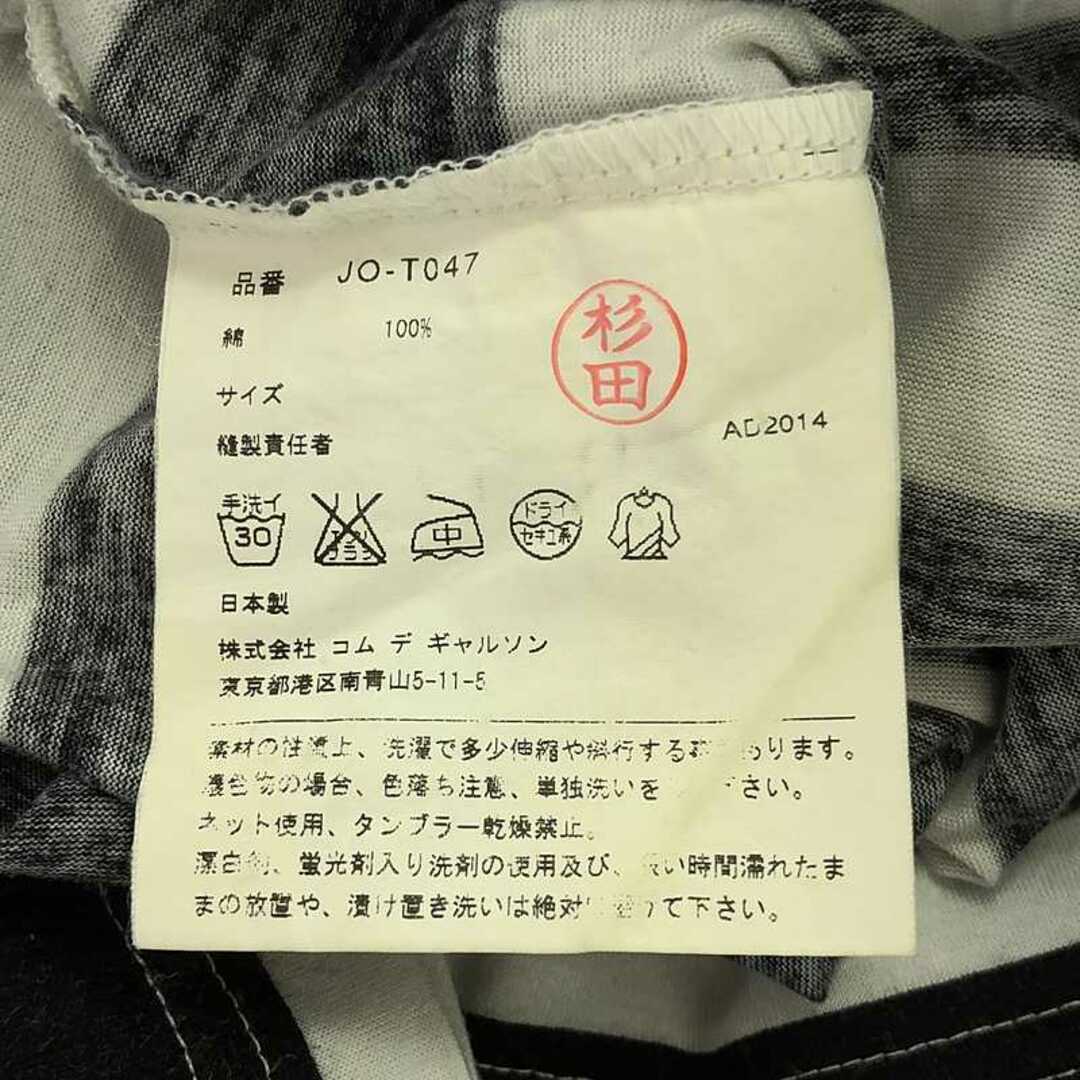 品番 JO-T047
綿 100%
杉田
サイズ
縫製責任者
AD2014
手洗イ 30
エンソサラシ
中
ドライ
セキユ系
日本製
株式会社 コム デ ギャルソン
東京都港区南青山5-11-5
素材の性質上、洗濯で多少伸縮や斜行する あります。
濃色物の場合、色落ち注意、単独洗いを 下さい。
ネット使用、タンブラー乾燥禁止。
漂白剤、蛍光剤入り洗剤の使用及び、長い時間濡れたま
まの放置や、漬け置き洗いは絶対 避けて下さい。